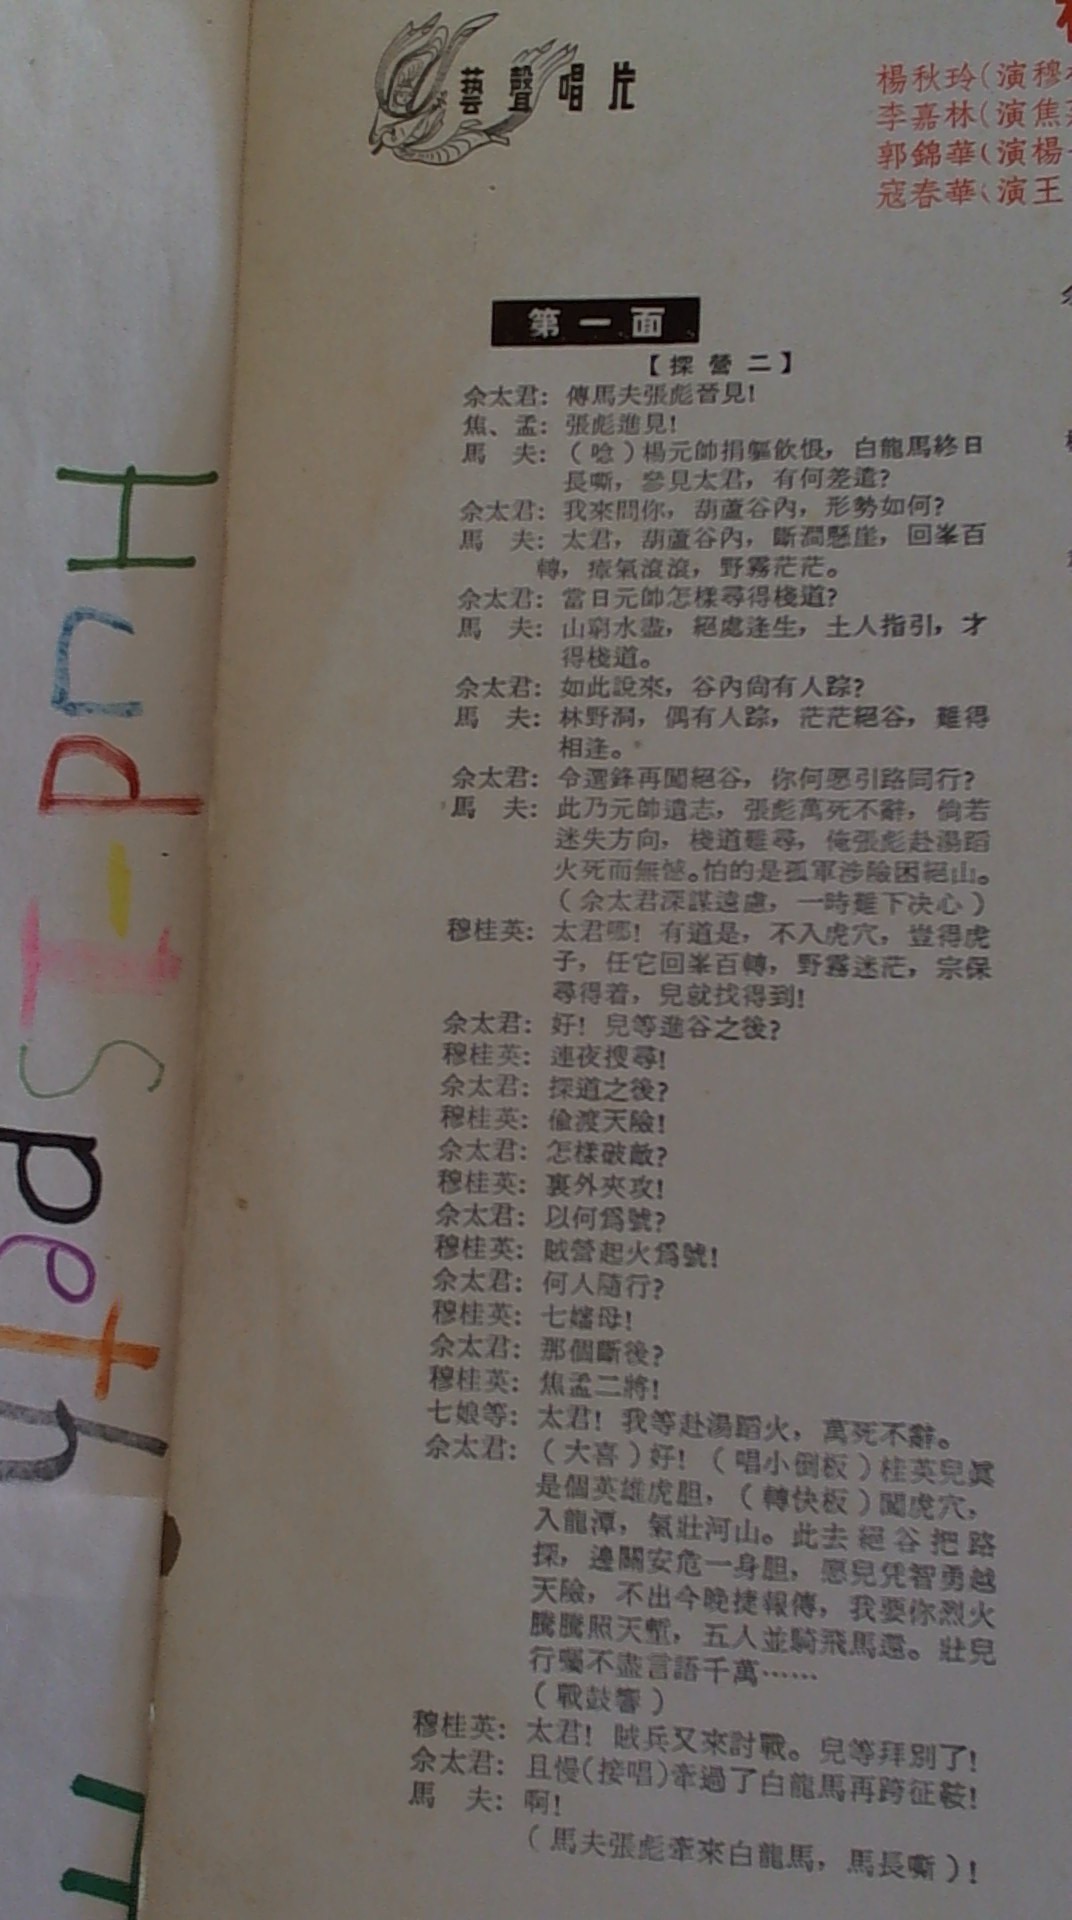 藝聲唱片
楊秋玲(演穆
李嘉林(演焦
郭錦華(演楊
寇春華(演王
第一面
【探營二】
佘太君: 傳馬夫張彪晉見!
焦、孟: 張彪進見!
馬 夫: (唸)楊元帥捐軀飲恨, 白龍馬終日
長嘶, 參見太君, 有何差遣?
佘太君: 我來問你, 葫蘆谷內, 形勢如何?
馬 夫: 太君, 葫蘆谷內, 斷澗懸崖, 回峯百
轉, 瘴氣滾滾, 野霧茫茫。
佘太君: 當日元帥怎樣尋得棧道?
馬 夫: 山窮水盡, 絕處逢生, 土人指引, 才
得棧道。
佘太君: 如此說來, 谷內尙有人踪?
馬 夫: 林野洞, 偶有人踪, 茫茫絕谷, 難得
相逢。
佘太君: 令選鋒再闖絕谷, 你何愿引路同行?
馬 夫: 此乃元帥遺志, 張彪萬死不辭, 倘若
迷失方向, 棧道難尋, 俺張彪赴湯蹈
火死而無憾。怕的是孤軍涉險困絕山。
(佘太君深謀遠慮, 一時難下决心)
穆桂英: 太君哪! 有道是, 不入虎穴, 豈得虎
子, 任它回峯百轉, 野霧迷茫, 宗保
尋得着, 兒就找得到!
佘太君: 好! 兒等進谷之後?
穆桂英: 連夜搜尋!
佘太君: 探道之後?
穆桂英: 偸渡天險!
佘太君: 怎樣破敵?
穆桂英: 裏外夾攻!
佘太君: 以何爲號?
穆桂英: 賊營起火爲號!
佘太君: 何人隨行?
穆桂英: 七嬸母!
佘太君: 那個斷後?
穆桂英: 焦孟二將!
七娘等: 太君! 我等赴湯蹈火, 萬死不辭。
佘太君: (大喜)好! (唱小倒板)桂英兒眞
是個英雄虎胆, (轉快板)闖虎穴,
入龍潭, 氣壯河山。此去絕谷把路
探, 邊關安危一身胆, 愿兒凭智勇越
天險, 不出今晚捷報傳, 我要你烈火
騰騰照天塹, 五人並騎飛馬還。壯兒
行囑不盡言語千萬……
(戰鼓響)
穆桂英: 太君! 賊兵又來討戰。兒等拜別了!
佘太君: 且慢(接唱)牽過了白龍馬再跨征鞍!
馬 夫: 啊!
(馬夫張彪牽來白龍馬, 馬長嘶)!